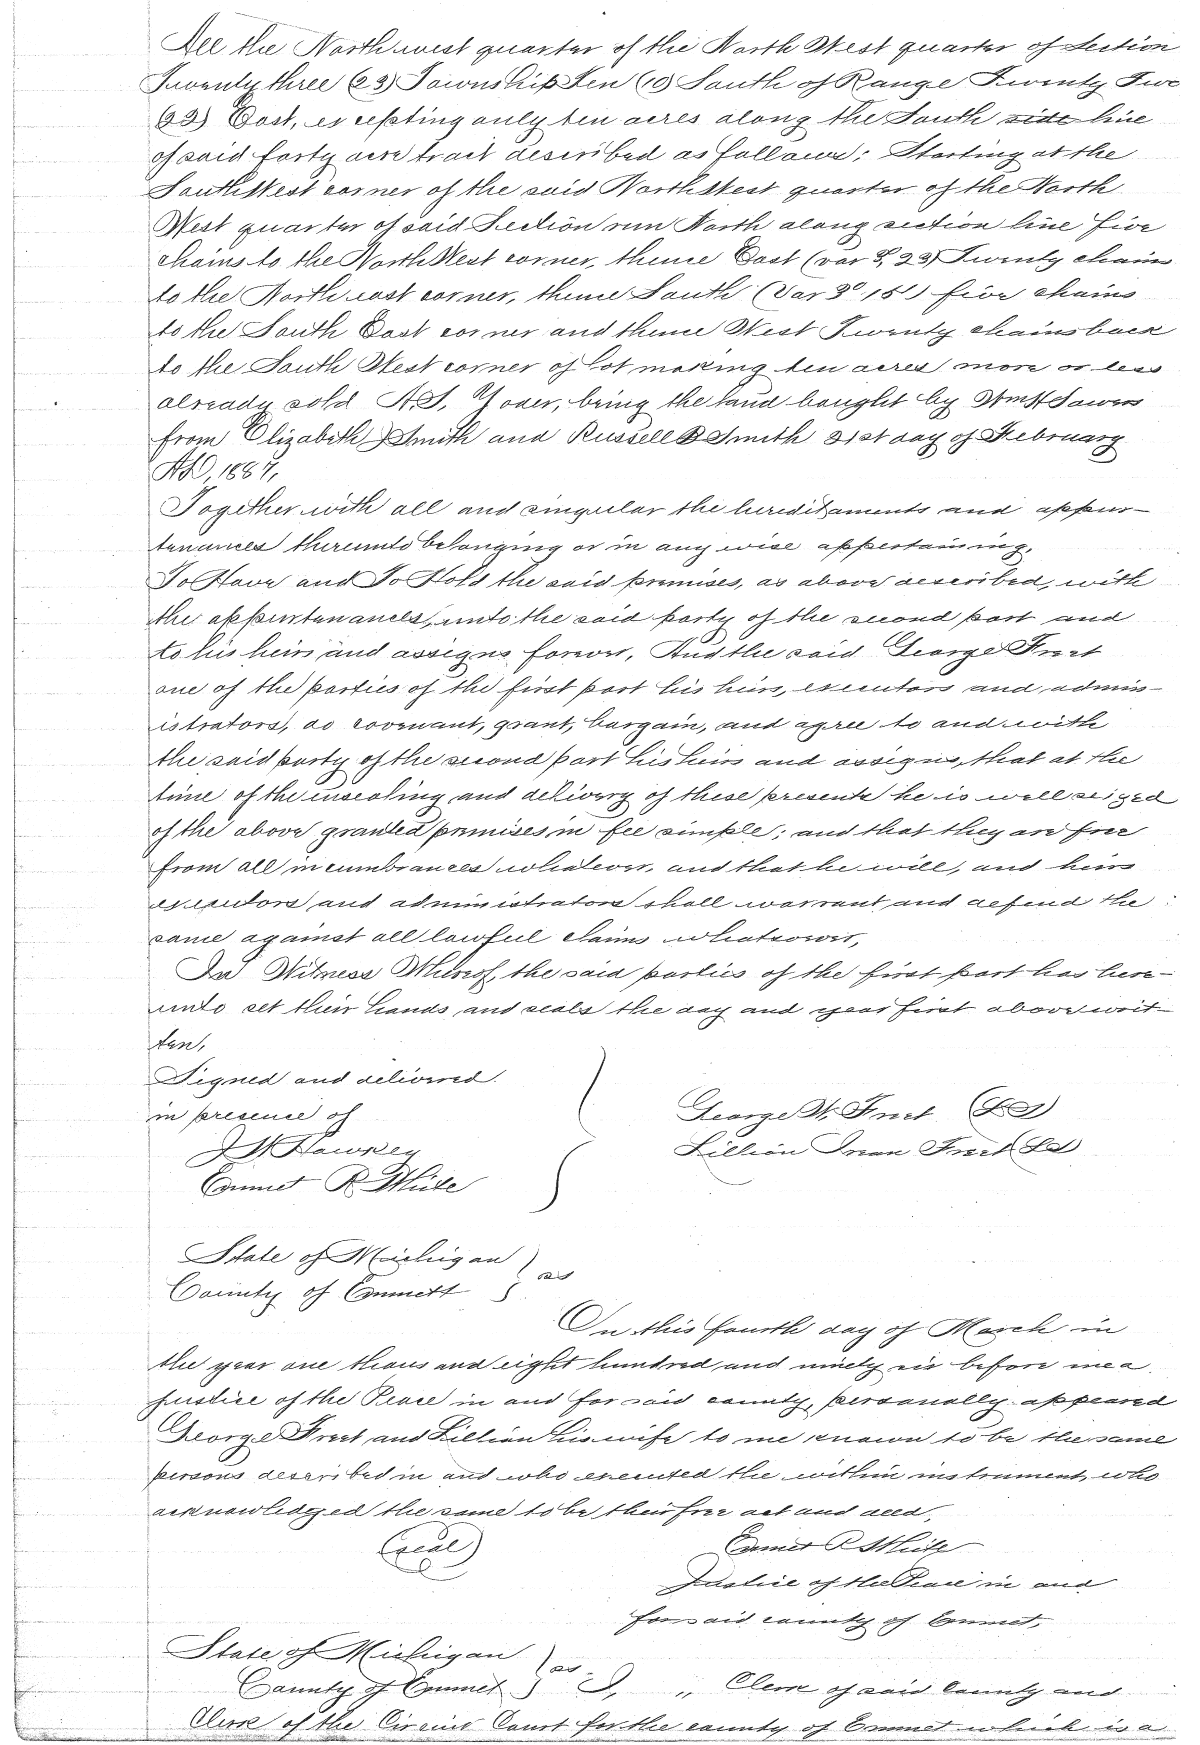 All the North west quarter of the North West quarter of Section
Twenty three (23) Township Ten (10) South of Range Twenty Two
(22) East, excepting only ten acres along the South side line
of said forty acre tract described as follows: Starting at the
South West corner of the said North West quarter of the North
West quarter of said Section run North along section line five
chains to the North West corner, thence East (var 3, 23) Twenty chains
to the North east corner, thence South (Var 3° 15') five chains
to the South East corner and thence West Twenty chains back
to the South West corner of lot making ten acres more or less
already sold A.S. Yoder, being the land bought by Wm H Sowers
from Elizabeth J Smith and Russell B Smith 21st day of February
AD, 1887,
Together with all and singular the hereditaments and appur-
tenances thereunto belonging or in any wise appertaining,
To Have and To Hold the said premises, as above described, with
the appurtenances, unto the said party of the second part and
to his heirs and assigns forever, And the said George
one of the parties of the first part his heirs, executors and admin-
istrators, do covenant, grant, bargain, and agree to and with
the said party of the second part his heirs and assigns, that at the
time of the ensealing and delivery of these presents he is well seized
of the above granted premises in fee simple; and that they are free
from all incumbrances whatever, and that he will, and heirs
executors and administrators shall warrant and defend the
same against all lawful claims whatsoever,
In Witness Whereof, the said parties of the first part has here-
unto set their hands and seals the day and year first above writ-
ten,
Signed and delivered
in presence of
George W. (LS)
J W Hawkey
Lillian (LS)
Emmet R White
State of Michigan
County of Emmett } ss
On this fourth day of March in
the year one thousand eight hundred and ninety six before me a
justice of the Peace in and for said county, personally appeared
George and Lillian his wife to me known to be the same
persons described in and who executed the within instrument, who
acknowledged the same to be their free act and deed,
(Seal)
Emmet R White
Justice of the Peace in and
for said county of Emmet,
State of Michigan
County of Emmet } ss I, " Clerk of said County and
Clerk of the Circuit Court for the county of Emmet which is a